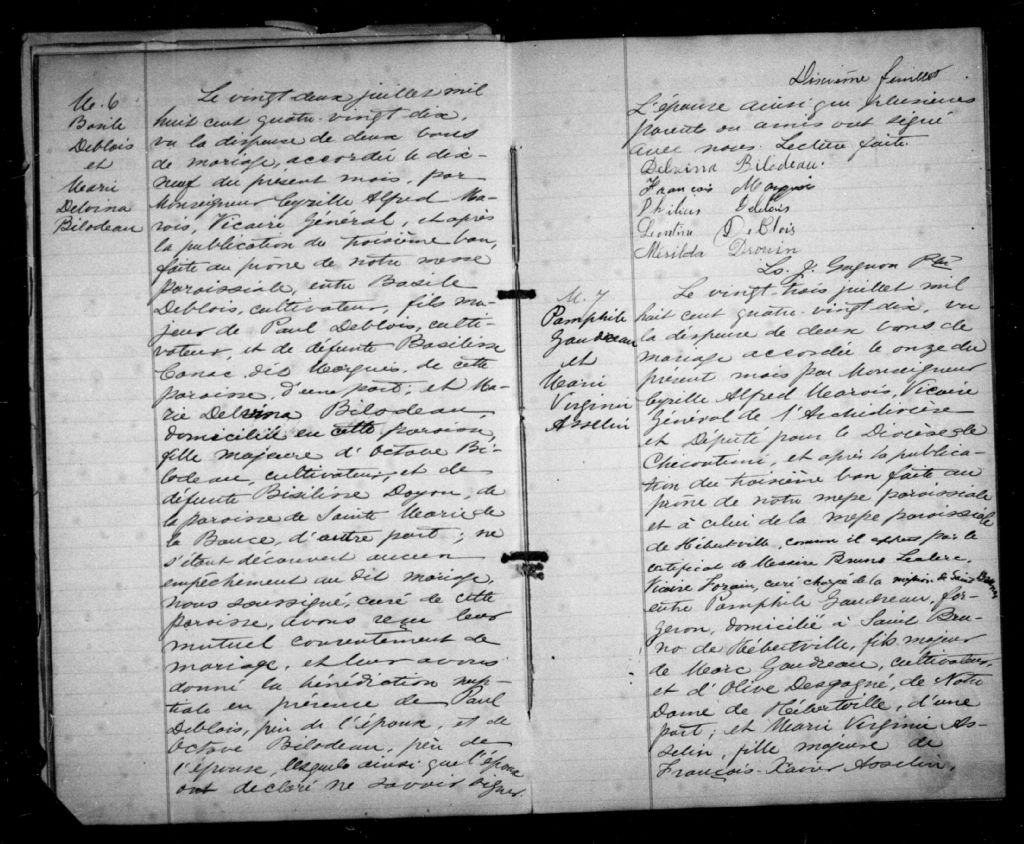 M. 6
Basile
Deblois
et
Marie
Delvina
Bilodeau
Le vingt deux juillet mil
huit cent quatre-vingt dix,
vu la dispense de deux bans
de mariage, accordée le dix-
neuf du présent mois, par
Monseigneur Cyrille Alfred Ma-
rois, Vicaire Général, et après
la publication du troisième ban,
faite au prône de notre messe
paroissiale, entre Basile
Deblois, cultivateur, fils ma-
jeur de Paul Deblois, culti-
vateur, et de défunte Basilisse
Canac dit Marquis, de cette
paroisse, d'une part; et Ma-
rie Delvina Bilodeau,
domiciliée en cette paroisse,
fille majeure d'Octave Bi-
lodeau, cultivateur, et de
défunte Basilisse Doyon, de
la paroisse de Sainte Marie de
la Bauce, d'autre part; ne
s'étant découvert aucun
empêchement au dit mariage,
nous soussigné, curé de cette
paroisse, avons reçu leur
mutuel consentement de
mariage, et leur avons
donné la bénédiction nup-
tiale en présence de Paul
Deblois, père de l'époux, et de
Octave Bilodeau, père de
l'épouse, lesquels ainsi que l'époux
ont déclaré ne savoir signer.
Dixième feuillet
L'épouse ainsi que plusieurs
parents ou amis ont signé
avec nous. Lecture faite.
Delvina Bilodeau.
François Marquis
Philius Deblois
Léontine DeBlois
Mérilda Drouin
Ls. J. Gagnon Ptre
M. 7
Pamphile
Gaudreau
et
Marie
Virginie
Asselin
Le vingt-trois juillet mil
huit cent quatre-vingt dix, vu
la dispense de deux bans de
mariage accordée le onze du
présent mois par Monseigneur
Cyrille Alfred Marois, Vicaire
Général de l'Archidiocèse
et Député pour le Diocèse de
Chicoutimi, et après la publica-
tion du troisième ban faite au
prône de notre messe paroissiale
et à celui de la messe paroissiale
de Hébertville, comme il appert par le
certificat de Messire Bruno Leclerc,
Vicaire Forain, curé chargé de la mission de Saint Bruno,
entre Pamphile Gaudreau, for-
geron, domicilié à Saint Bru-
no de Hébertville, fils majeur
de Marc Gaudreau, cultivateur,
et d'Olive Desgagné, de Notre
Dame de Hébertville, d'une
part; et Marie Virginie As-
selin, fille majeure de
François-Xavier Asselin,